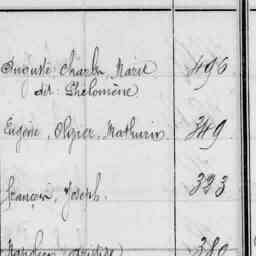 Auguste Charles Marie 496
dit Philomène
Eugène, Olivier, Mathurin 349
François, Joseph. 323
380